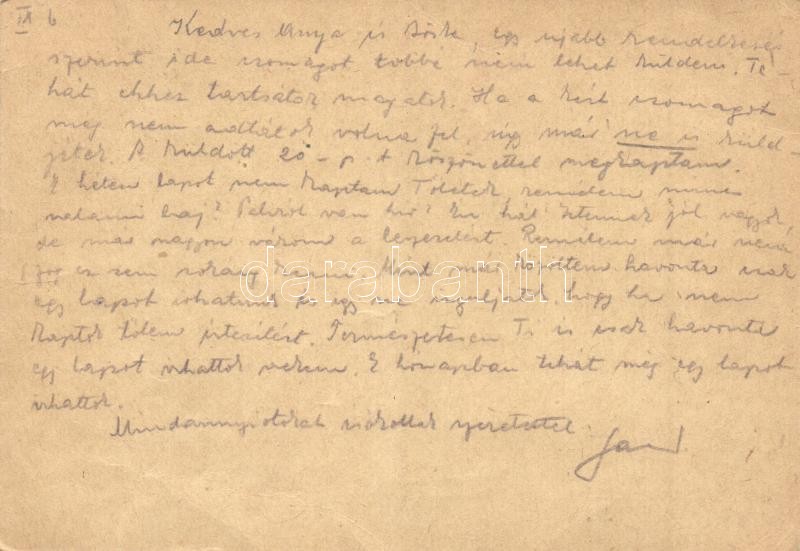 IX 6
Kedves Anya és Böske, egy ujabb rendelkezés
szerint ide csomagot többé nem lehet küldeni. Te-
hát ehhez tartsátok magatok. Ha a kért csomagot
még nem adtátok volna fel, úgy már ne is küld-
jétek. A küldött 20 – p.-t köszönettel megkaptam.
E héten lapot nem kaptam Tőletek, remélem nincs
valami baj? Palról van hir? Én hál' Istennek jól vagyok,
de már nagyon várom a leszerelést. Remélem már nem
fog ez sem sokáig késni. Mint már közöltem havonta csak
egy lapot irhatunk és igy ne izguljatok, hogy ha nem
kaptok tőlem értesitést. Természetesen Ti is csak havonta
egy lapot irhattok nekem. E hónapban tehát még egy lapot
irhattok.
Mindannyiotokat csókollak szeretettel
darabanth